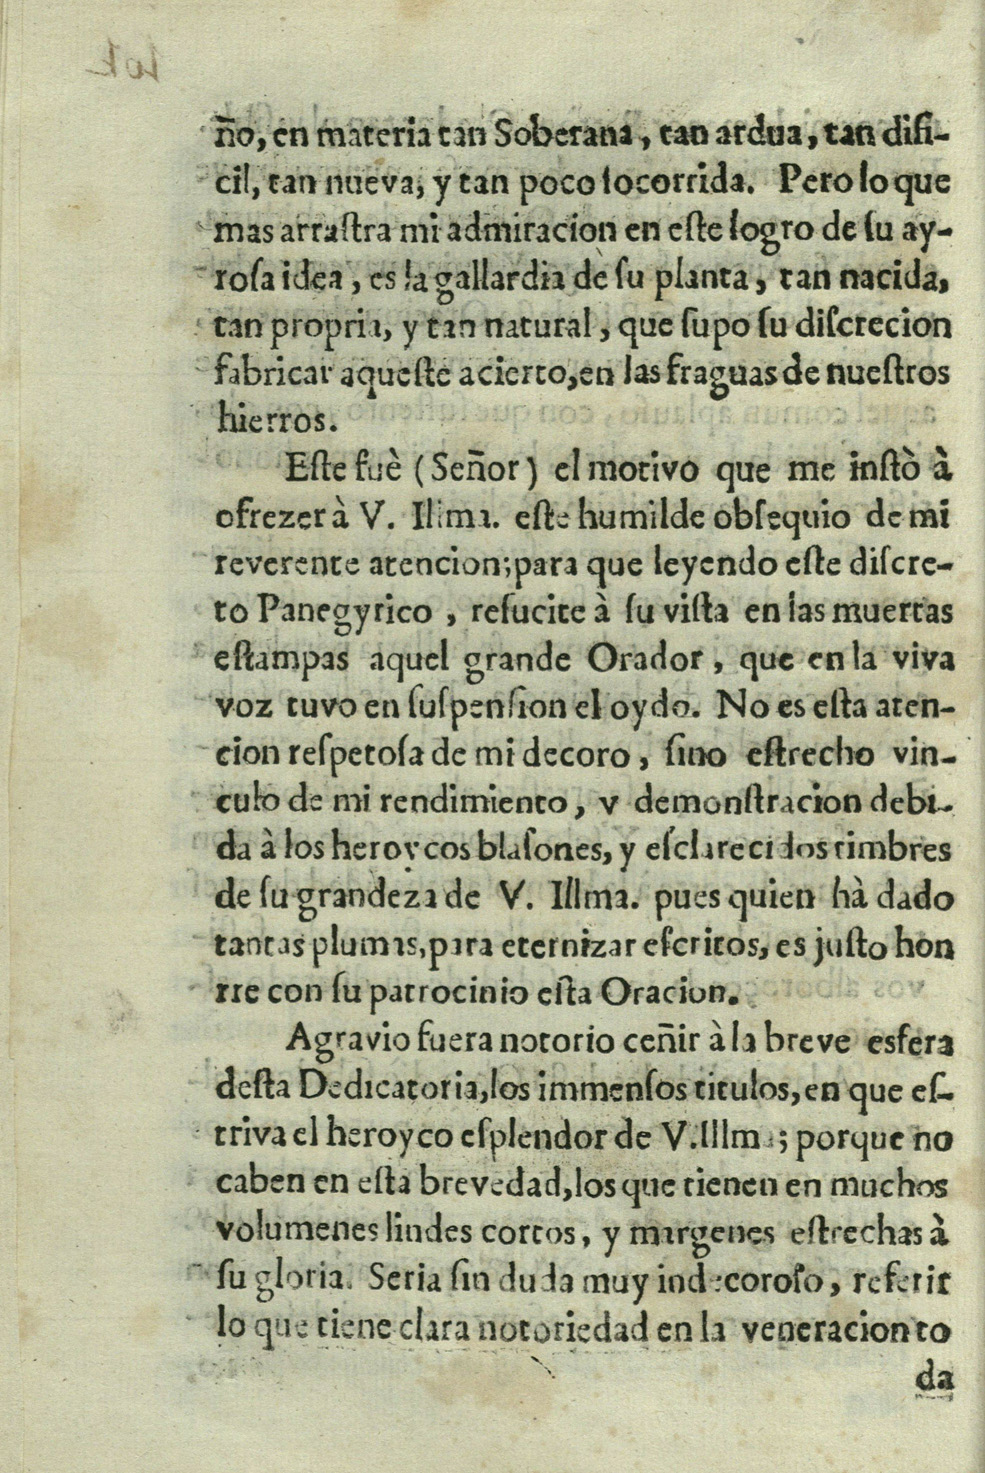 ño, en materia tan Soberana, tan ardua, tan difi-
cil, tan nueva, y tan poco ſocorrida. Pero lo que
mas arraſtra mi admiracion en eſte logro de ſu ay-
roſa idea, es la gallardia de ſu planta, tan nacida,
tan propria, y tan natural, que ſupo ſu diſcrecion
fabricar aqueſte acierto, en las fraguas de nueſtros
hierros.
Eſte fuè (Señor) el motivo que me inſtò à
ofrezer à V. Illma. eſte humilde obſequio de mi
reverente atencion; para que leyendo eſte diſcre-
to Panegyrico, reſucite à ſu viſta en las muertas
eſtampas aquel grande Orador, que en la viva
voz tuvo en ſuſpenſion el oydo. No es eſta aten-
cion reſpetoſa de mi decoro, ſino eſtrecho vin-
culo de mi rendimiento, y demonſtracion debi-
da à los heroycos blaſones, y eſclarecidos timbres
de ſu grandeza de V. Illma. pues quien hà dado
tantas plumas, para eternizar eſcritos, es juſto hon
rre con ſu patrocinio eſta Oracion.
Agravio fuera notorio ceñir à la breve esfera
deſta Dedicatoria, los immenſos titulos, en que eſ-
triva el heroyco eſplendor de V. Illma; porque no
caben en eſta brevedad, los que tienen en muchos
volumenes lindes cortos, y margenes eſtrechas à
ſu gloria. Seria ſin duda muy indecoroſo, referir
lo que tiene clara notoriedad en la veneracion to
da